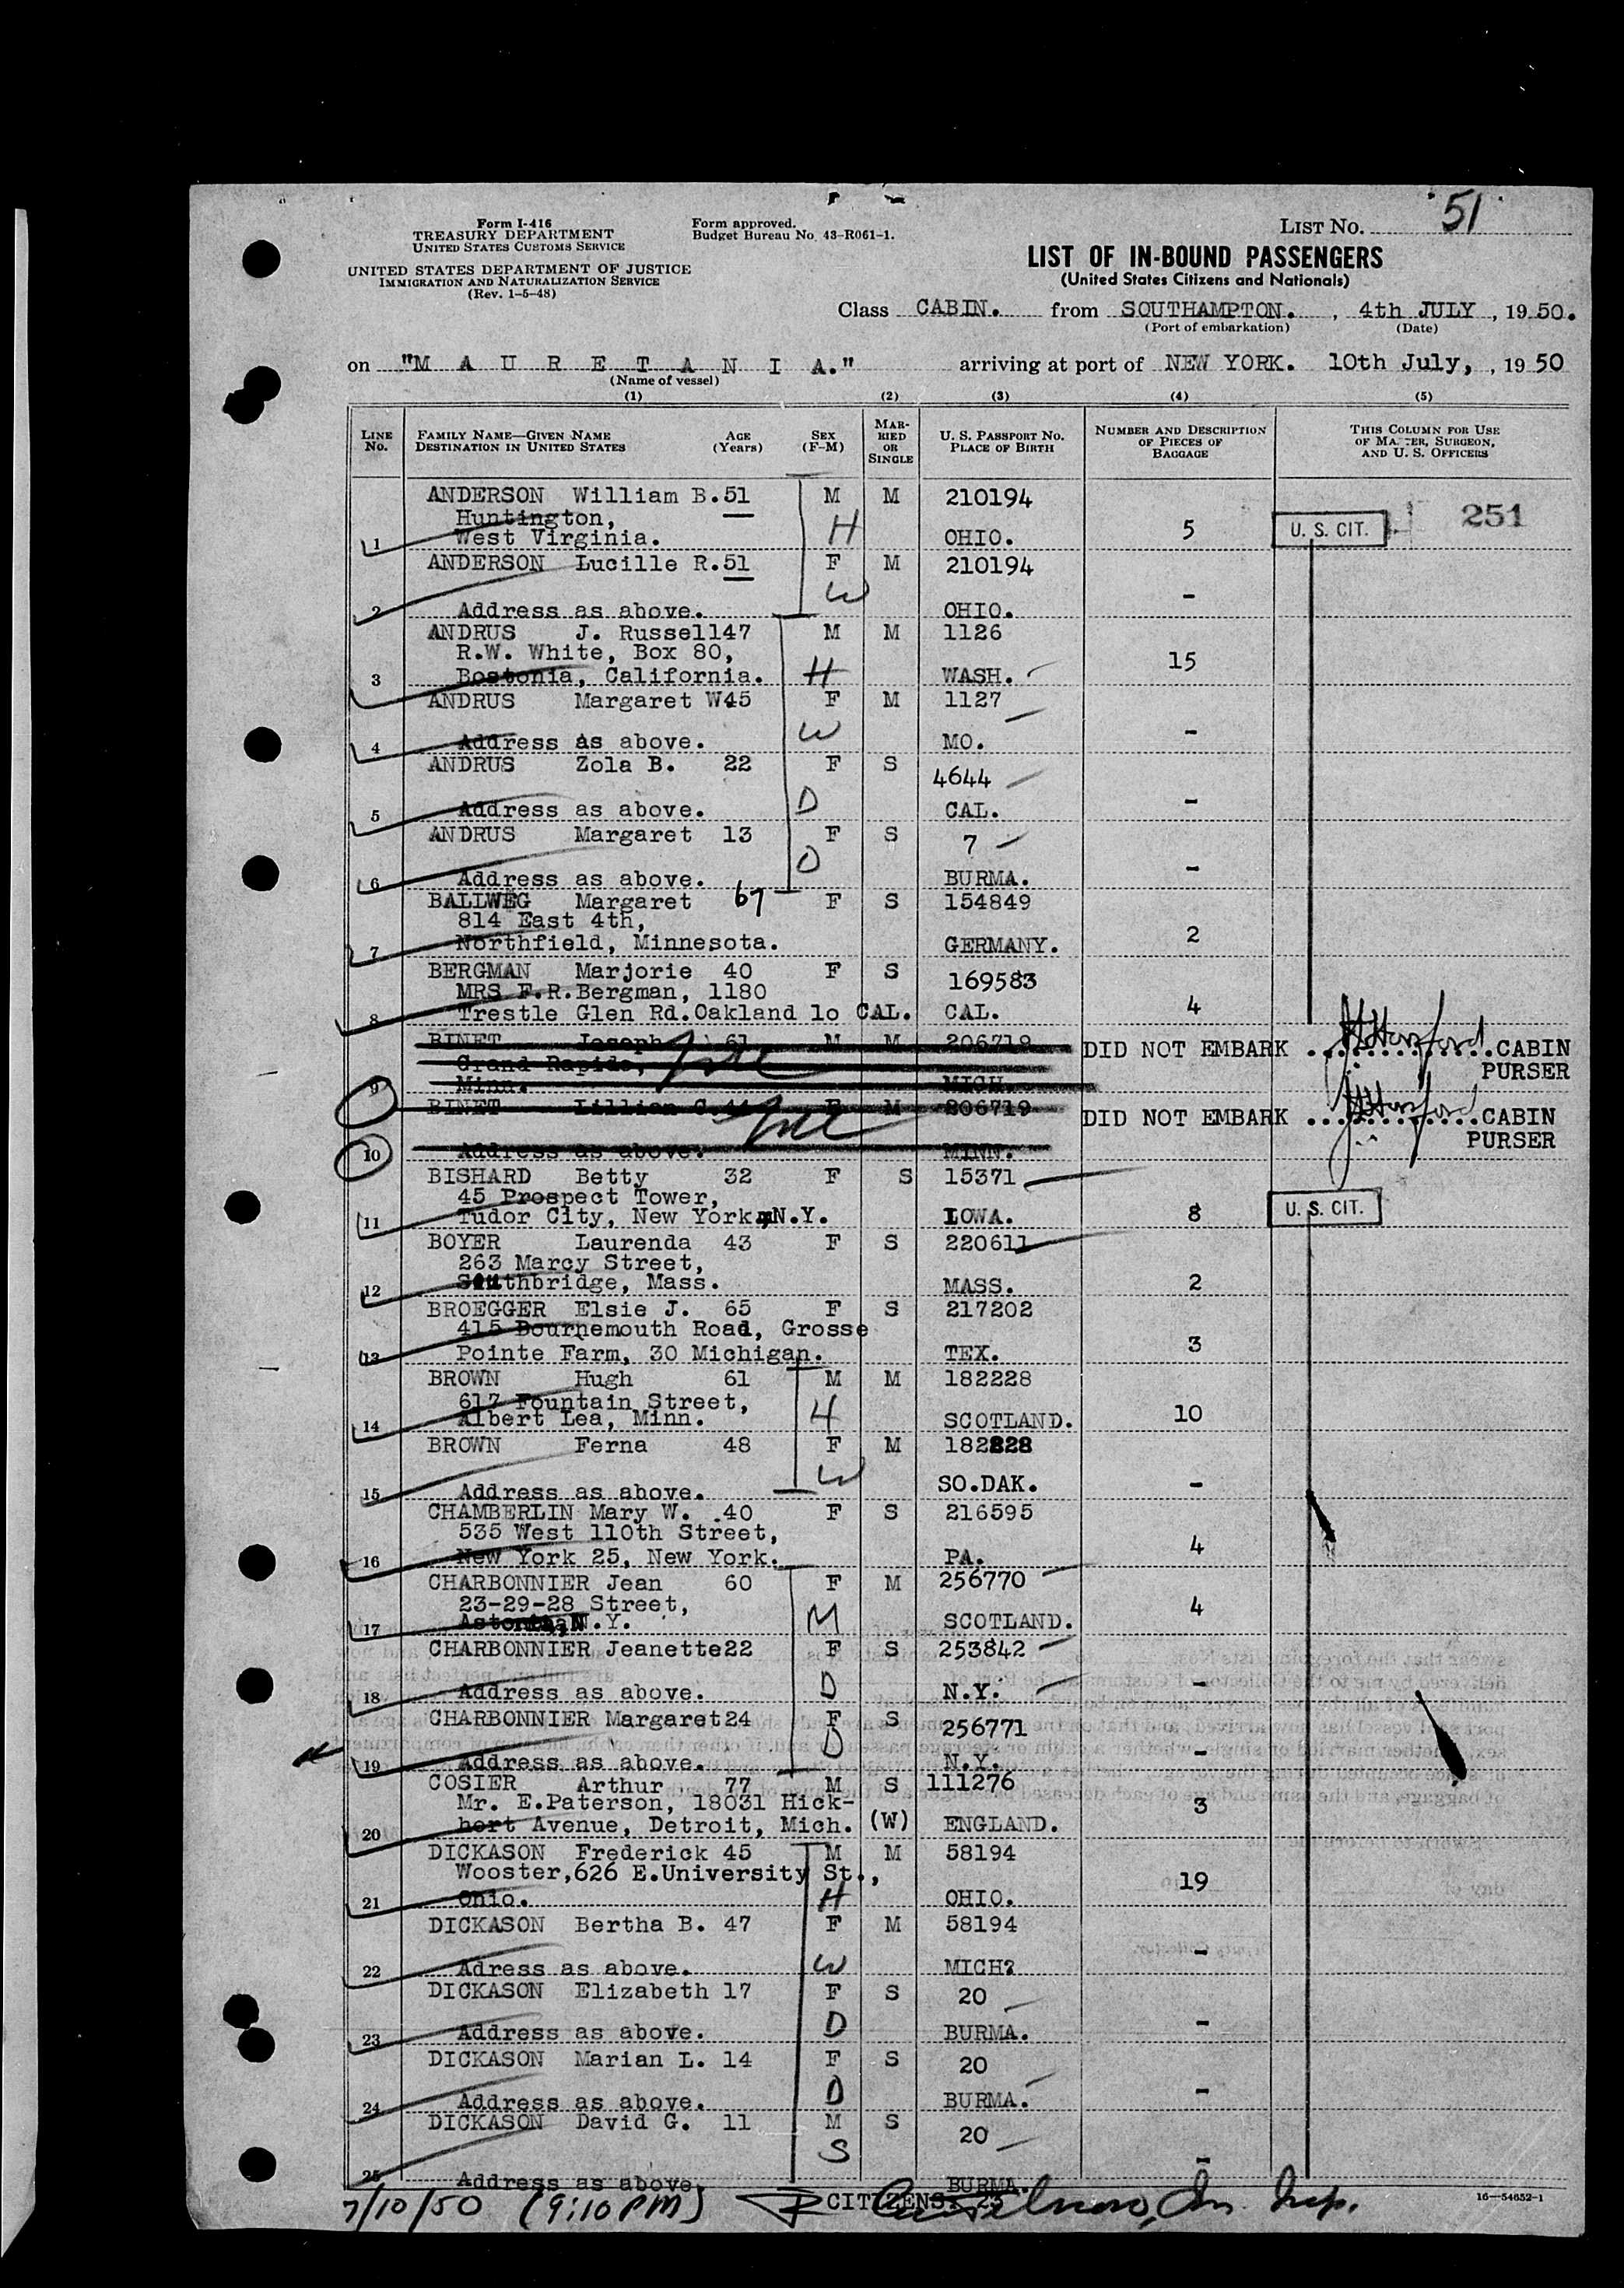 Form I-416
TREASURY DEPARTMENT
UNITED STATES CUSTOMS SERVICE
UNITED STATES DEPARTMENT OF JUSTICE
IMMIGRATION AND NATURALIZATION SERVICE
(Rev. 1-5-48)
Form approved.
Budget Bureau No. 43-R061-1.
LIST No. 51
LIST OF IN-BOUND PASSENGERS
(United States Citizens and Nationals)
Class CABIN. from SOUTHAMPTON. , 4th JULY , 19 50.
(Port of embarkation) (Date)
on "M A U R E T A N I A." arriving at port of NEW YORK. 10th July, , 19 50
(Name of vessel)
(1) (2) (3) (4) (5)
LINE No. FAMILY NAME—GIVEN NAME DESTINATION IN UNITED STATES AGE (Years) SEX (F-M) MARRIED OR SINGLE U. S. PASSPORT NO. PLACE OF BIRTH NUMBER AND DESCRIPTION OF PIECES OF BAGGAGE THIS COLUMN FOR USE OF MASTER, SURGEON, AND U. S. OFFICERS
ANDERSON William B. 51 M M 210194
Huntington, H 5 U. S. CIT. 251
1 West Virginia. OHIO.
ANDERSON Lucille R. 51 F M 210194
W -
2 Address as above. OHIO.
ANDRUS J. Russell 47 M M 1126
R.W. White, Box 80, 15
3 Bostonia, California. H WASH.
ANDRUS Margaret W 45 F M 1127
W -
4 Address as above. MO.
ANDRUS Zola B. 22 F S 4644
D -
5 Address as above. CAL.
ANDRUS Margaret 13 F S 7
D -
6 Address as above. BURMA.
BALLWEG Margaret 67 F S 154849
814 East 4th, 2
7 Northfield, Minnesota. GERMANY.
BERGMAN Marjorie 40 F S 169583
MRS F.R.Bergman, 1180 4
8 Trestle Glen Rd.Oakland 10 CAL. CAL.
BINET Joseph 61 M M 206718 DID NOT EMBARK ..............CABIN
Grand Rapids, PURSER
9 Minn. MICH.
BINET Lillian C. 44 F M 206719 DID NOT EMBARK ..............CABIN
PURSER
10 Address as above. MINN.
BISHARD Betty 32 F S 15371
45 Prospect Tower, 8 U. S. CIT.
11 Tudor City, New York, N.Y. IOWA.
BOYER Laurenda 43 F S 220611
263 Marcy Street, 2
12 Southbridge, Mass. MASS.
BROEGGER Elsie J. 65 F S 217202
415 Bournemouth Road, Grosse 3
13 Pointe Farm, 30 Michigan. TEX.
BROWN Hugh 61 M M 182228
617 Fountain Street, H 10
14 Albert Lea, Minn. SCOTLAND.
BROWN Ferna 48 F M 182828
W -
15 Address as above. SO.DAK.
CHAMBERLIN Mary W. .40 F S 216595
535 West 110th Street, 4
16 New York 25, New York. PA.
CHARBONNIER Jean 60 F M 256770
23-29-28 Street, M 4
17 Astoria, N.Y. SCOTLAND.
CHARBONNIER Jeanette 22 F S 253842
D -
18 Address as above. N.Y.
CHARBONNIER Margaret 24 F S 256771
D -
19 Address as above. N.Y.
COSIER Arthur 77 M S 111276
Mr. E.Paterson, 18031 Hick- (W) 3
20 hort Avenue, Detroit, Mich. ENGLAND.
DICKASON Frederick 45 M M 58194
Wooster,626 E.University St., 19
21 Ohio. H OHIO.
DICKASON Bertha B. 47 F M 58194
W -
22 Adress as above. MICH?
DICKASON Elizabeth 17 F S 20
D -
23 Address as above. BURMA.
DICKASON Marian L. 14 F S 20
D -
24 Address as above. BURMA.
DICKASON David G. 11 M S 20
S -
25 Address as above. BURMA.
7/10/50 (9:10 PM) CITIZENS: 23 Im. Insp. 16—54652-1